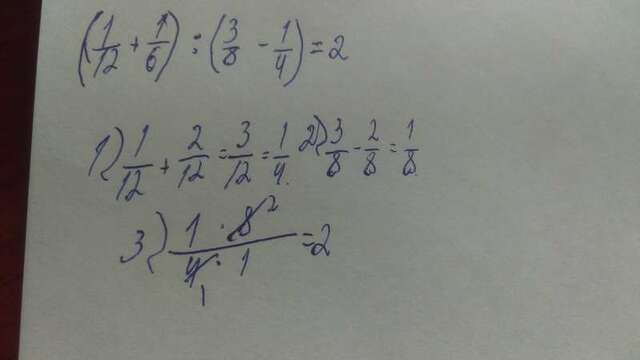 (1/12 + 1/6) : (3/8 - 1/4) = 2
1) 1/12 + 2/12 = 3/12 = 1/4. 2) 3/8 - 2/8 = 1/8.
3) (1 · 8 2)/(4 1 · 1) = 2